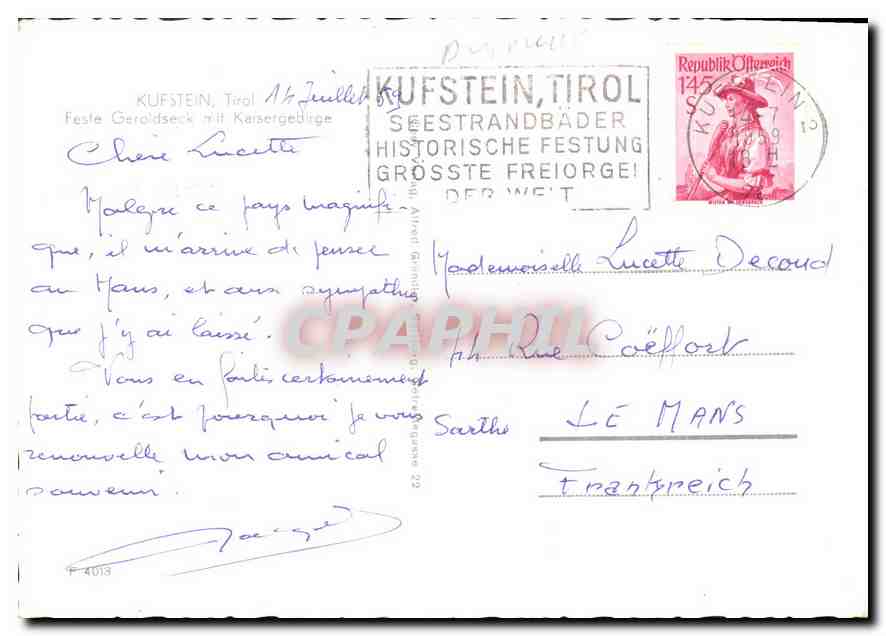 KUFSTEIN, Tirol 14 Juillet 59
Feste Geroldseck mit Kaisergebirge
Chère Lucette
Malgré ce pays magnifi-
que, il m'arrive de penser
au Mans, et aux sympathies
que j'y ai laissé.
Vous en faites certainement
partie, c'est pourquoi je vous
renouvelle mon amical
souvenir.
F 4013
KUFSTEIN, TIROL
SEESTRANDBÄDER
HISTORISCHE FESTUNG
GRÖSSTE FREIORGEL
DER WELT
Republik Österreich
1'45
S
KUFSTEIN 2
Mademoiselle Lucette Decoud
14 Rue Coëffort
Sarthe LE MANS
Frankreich
CPAPHIL